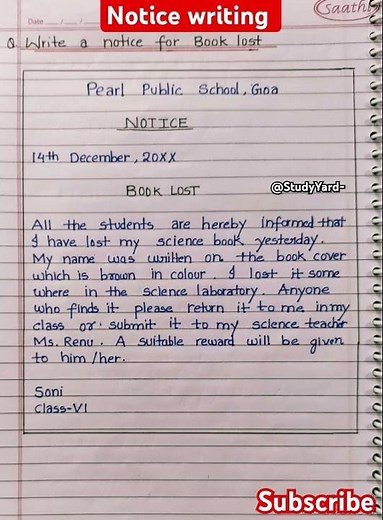 Notice writing
Saathi
Date __/__/__
Q. Write a notice for Book lost
Pearl Public School, Goa
NOTICE
14th December, 20XX
BOOK LOST
@StudyYard-
All the students are hereby informed that
I have lost my science book yesterday.
My name was written on the book cover
which is brown in colour. I lost it some
where in the science laboratory. Anyone
who finds it please return it to me in my
class or submit it to my science teacher
Ms. Renu. A suitable reward will be given
to him/her.
Soni
Class-VI
Subscribe